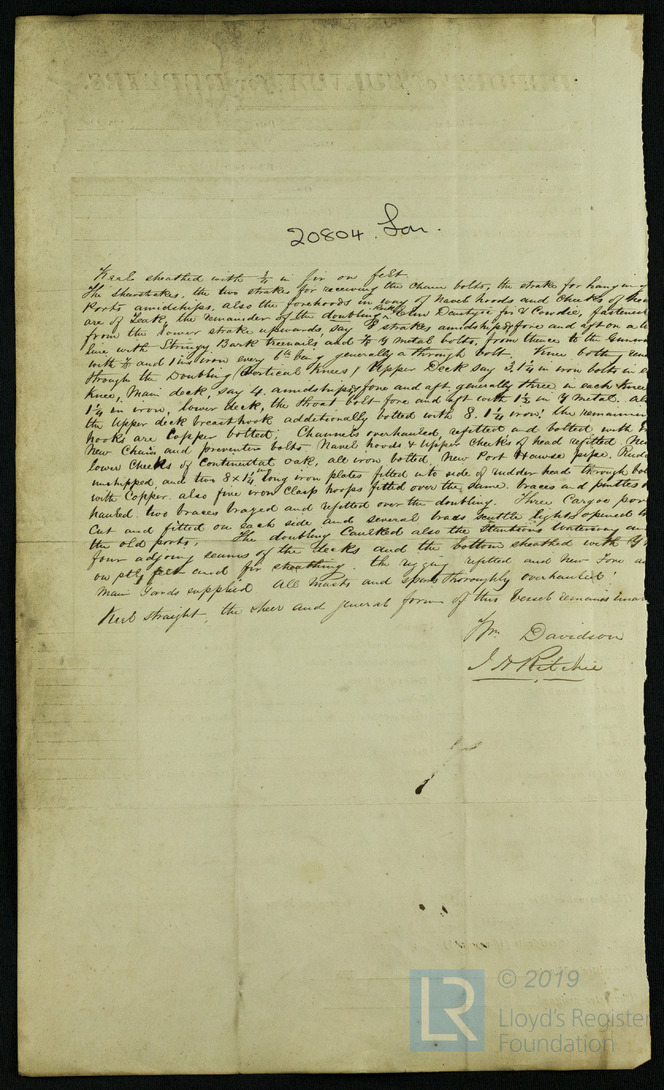 20804. Lon.
Keel sheathed with ¾ in fir on felt
The sheerstrakes, the two strakes for receiving the chain bolts, the strake for hang in
Ports amidships, also the forehoods in way of Navel hoods and Cheeks of
are of Teak, the remainder of the doubling Elm Dantzic fir & Cowdie, fastened
from the lower strake upwards, say 8 strakes amidships fore and aft on a
line with Stringy Bark treenails and Y metal bolts, from thence to the Gunwa
with and 1 in iron every 6th being generally a through bolt. Knee bolts
through the Doubling (Vertical Knees) Upper Deck say 3. 1¼ in iron bolts in e
Knee, Main deck, say 4. amidships fore and aft generally three in each knee
1¼ in iron, lower deck, the throat bolt fore and aft with 1⅛ in Y metal. al
the Upper deck breasthook additionally bolted with 8. 1¼ iron. the remainin
hooks are Copper bolted; Channels overhauled, refitted and bolted with
New Chain and preventer bolts Navel hoods & Upper Cheeks of head refitted New
lower Cheeks of Continental oak, all iron bolted, New Port Hawse pipe. Rud
unshipped, and two long iron plates fitted into side of rudder head through bo
with Copper. also five iron Clasp hoops fitted over the same. braces and pintles
hauled. two braces brazed and refitted over the doubling. Three Cargoe por
Cut and fitted on each side and several brass scuttle lights opened
the old ports. The doubling Caulked also the Stantions Waterway an
four adjoing seams of the decks and the bottom sheathed with Y
on felt and fir sheathing. the rigging refitted and New Fore a
Main Yards supplied all Masts and spars thoroughly overhauled
Keel straight, the sheer and general form of this Vessel remains
Wm Davidson
J A Ritchie
© 2019
LR
Lloyd's Register
Foundation